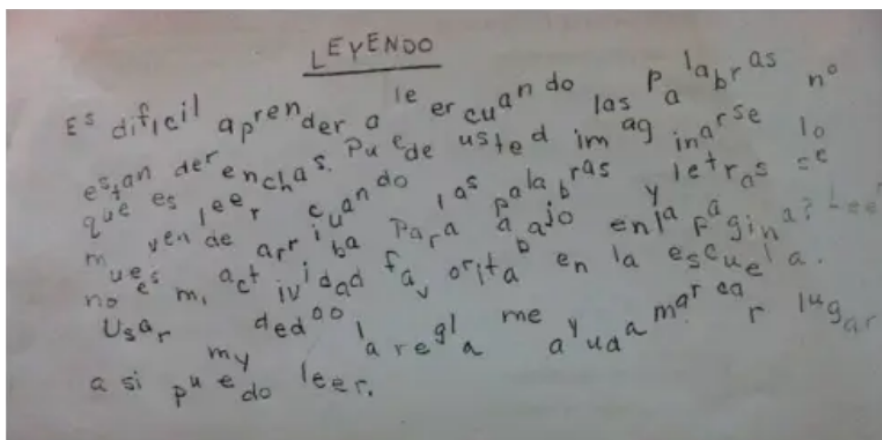 LEYENDO
Es dificil aprender a leer cuando las palabras no
estan derenchas. Puede usted imaginarse lo
que es leer cuando las palabras y letras se
mueven de arriba para abajo en la pagina? Leer
no es mi actividad favorita en la escuela.
Usar my dedo o la regla me ayuda a marcar lugar
asi puedo leer.